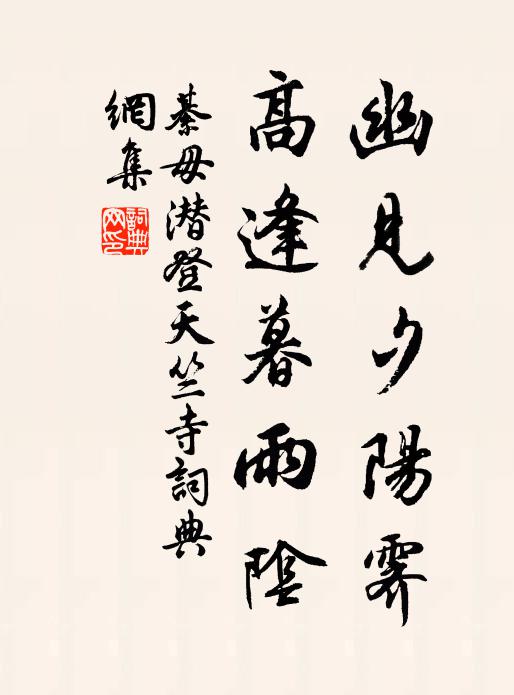 幽見夕陽霽
高逢暮雨陰
綦毋潛登天竺寺詞典
網集
詞典网印